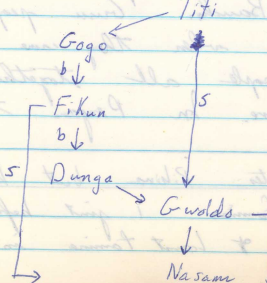 Titi
Gogo
b
Fikun
S
b
S
Dunga
Gwoldo
Nasami